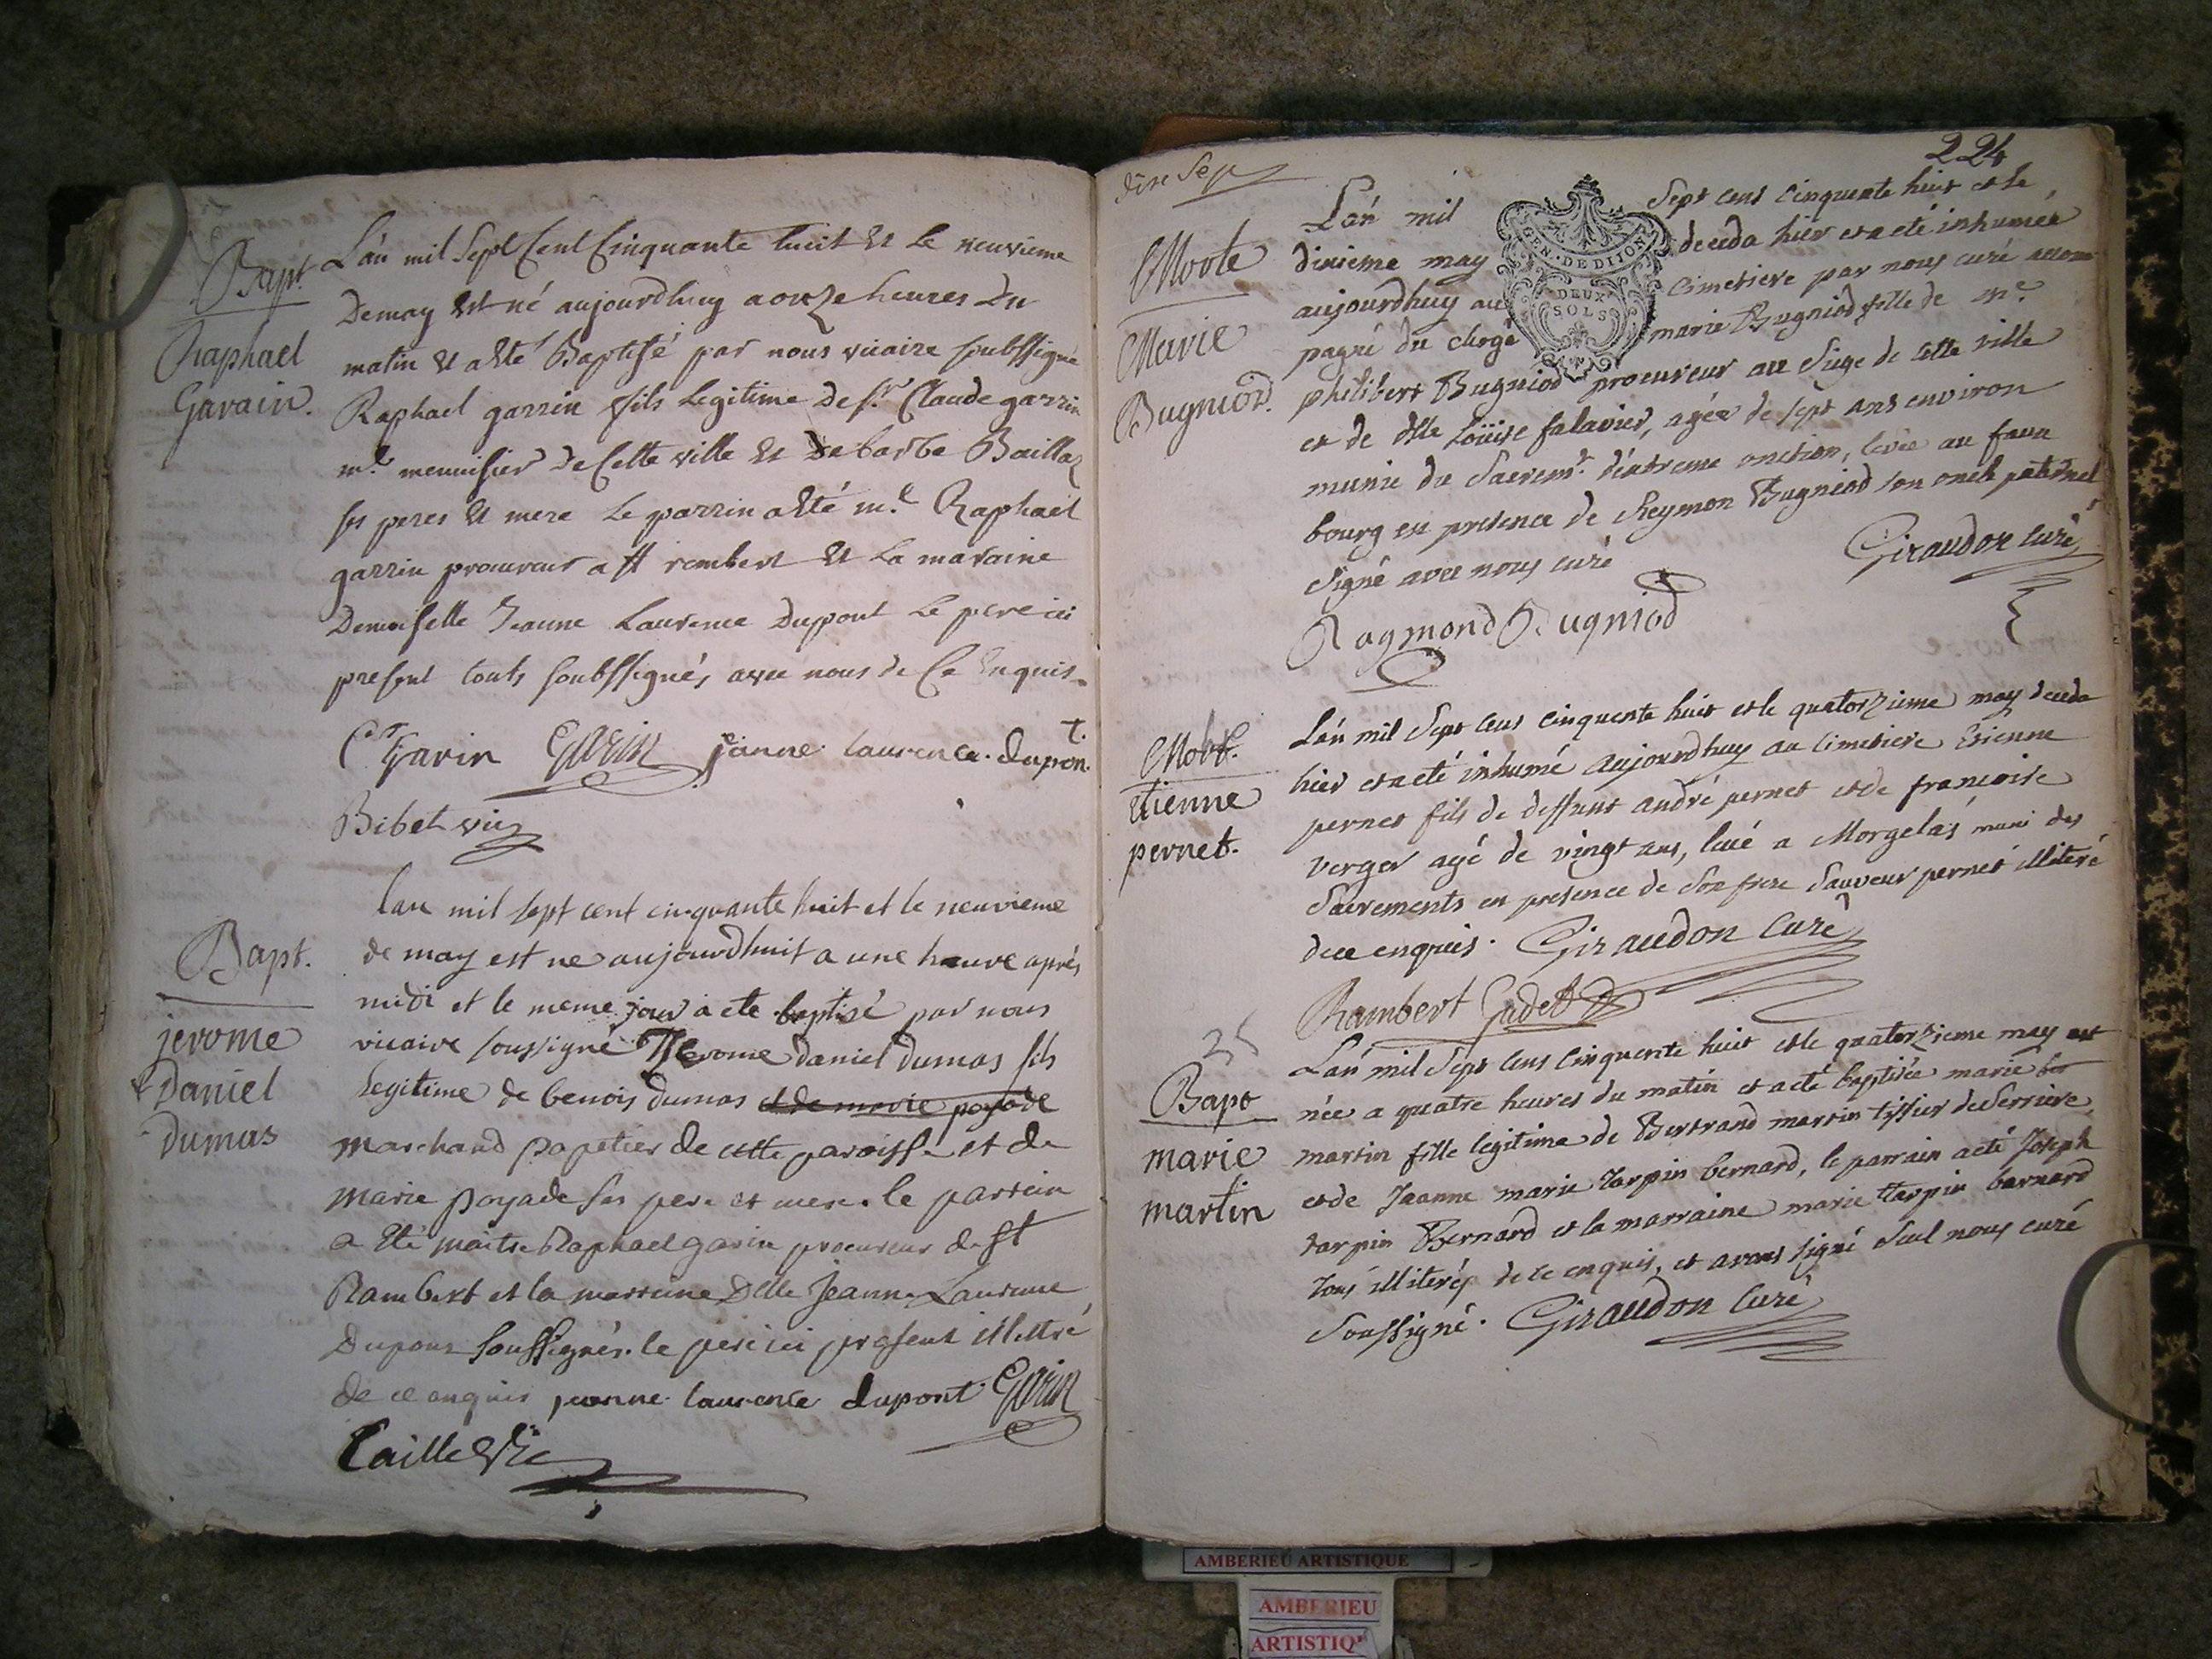 Bapt.
Raphael
Garain.
L'an mil Sept Cent Cinquante huit Et Le neuvieme
De may Est né aujourdhuy a onze heures Du
matin Et a Eté Baptisé par nous vicaire soubssigné
Raphael garrin fils Legitime De sr. Claude garrin
me. menuisier De Cette ville Et De barbe Baillaz
ses peres Et mere Le parrin a Eté me. Raphael
garrin procureur a st rembert Et La maraine
Demoiselle Jeanne Laurence Dupont Le pere ici
present touts soubssignés avec nous de Ce Enquis.
Cr. Garin Garin jeanne laurence. dupon.t.
Bibet vic
Bapt.
jerome
Daniel
Dumas
lan mil sept cent cinquante huit et le neuvieme
de may est ne aujourdhuit a une heure aprés
midi et le meme jour a ete baptisé par nous
vicaire soussigné Jerome daniel dumas fils
legitime de benois dumas et de marie poyade
marchand papetier de cette paroisse et de
marie poyade ses pere et mere. le parrein
a Eté maitre Raphael garin procureur de st
Rambert et la marreine Delle Jeanne Laurence
Dupont soussignés. le pere ici present illettré
de ce enquis jeanne. laurence dupont Garin
Caille Vic
dixe Sep
224
GEN. DE DIJON
DEUX
SOLS
Morte
Marie
Bugniod.
L'an mil Sept cens Cinquente huit et le
dixieme may deceda hier et a eté inhumée
aujourdhuy au Cimetiere par nous curé accom
pagné du clergé marie Bugniod fille de me.
philibert Bugniod procureur au Siege de cette ville
et de dlle Loüise falavier, agée de sept ans environ
munie du Sacremt. d'extreme onction, levée au faux
bourg en presence de Reymon Bugniod son oncle paternel
Signé avec nous curé Giraudon Curé
Raymond Bugniod
Mort.
Etienne
pernet.
L'an mil Sept cens cinquente huit et le quatorzieme may deceda
hier et a eté inhumé aujourdhuy au Cimetiere Etienne
pernet fils de deffunt andré pernet et de francoise
verger agé de vingt ans, levé a Morgelas muni des
Sacrements en presence de Son frere Sauveur pernet illiteré
de ce enquis. Giraudon Curé
Rambert Gudet
25
Bapt
marie
martin
L'an mil Sept Cens Cinquente huit et le quatorzieme may est
née a quatre heures du matin et a eté baptisée marie ber
martin fille legitime de Bertrand martin tissier de Serriere
et de Jeanne marie Tarpin bernard, le parrain a eté Joseph
tarpin Bernard et la marraine marie tarpin bernard
tous illiterés de ce enquis, et avons signé Seul nous curé
Soussigné. Giraudon Curé
AMBERIEU ARTISTIQUE
AMBERIEU
ARTISTIQ